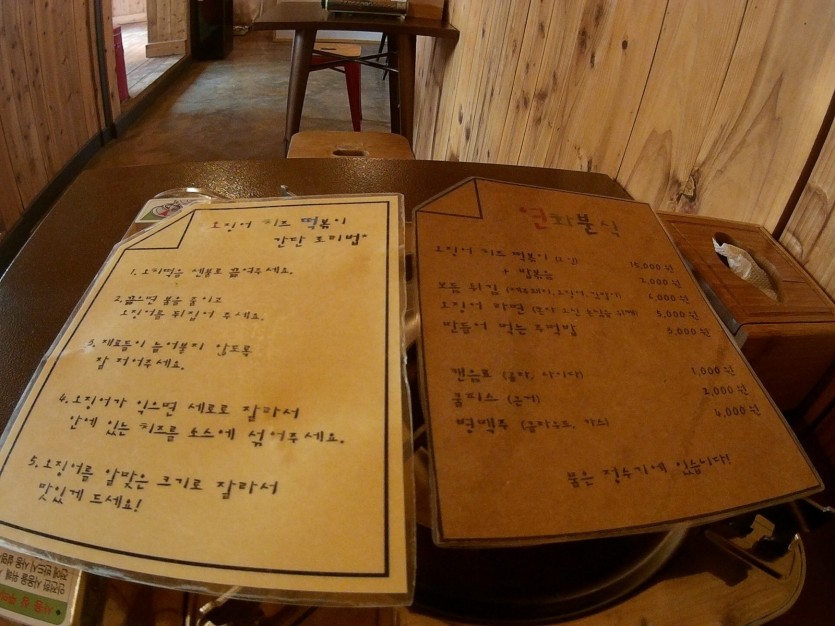 오징어 치즈 떡볶이
간단 조리법
1. 오징어를 센불로 끓여주세요.
2. 끓으면 불을 줄이고
오징어를 뒤집어 주세요.
3. 재료들이 눌어붙지 않도록
잘 저어주세요.
4. 오징어가 익으면 세로로 잘라서
안에 있는 치즈를 소스에 섞어주세요.
5. 오징어를 알맞은 크기로 잘라서
맛있게 드세요!
연화분식
오징어 치즈 떡볶이 (2인) 15,000원
+ 밥볶음 2,000원
모듬 튀김
오징어 짜면
만들어 먹는 주먹밥
캔음료 (콜라, 사이다) 1,000원
쿨피스 2,000원
병맥주 4,000원
물은 정수기에 있습니다!